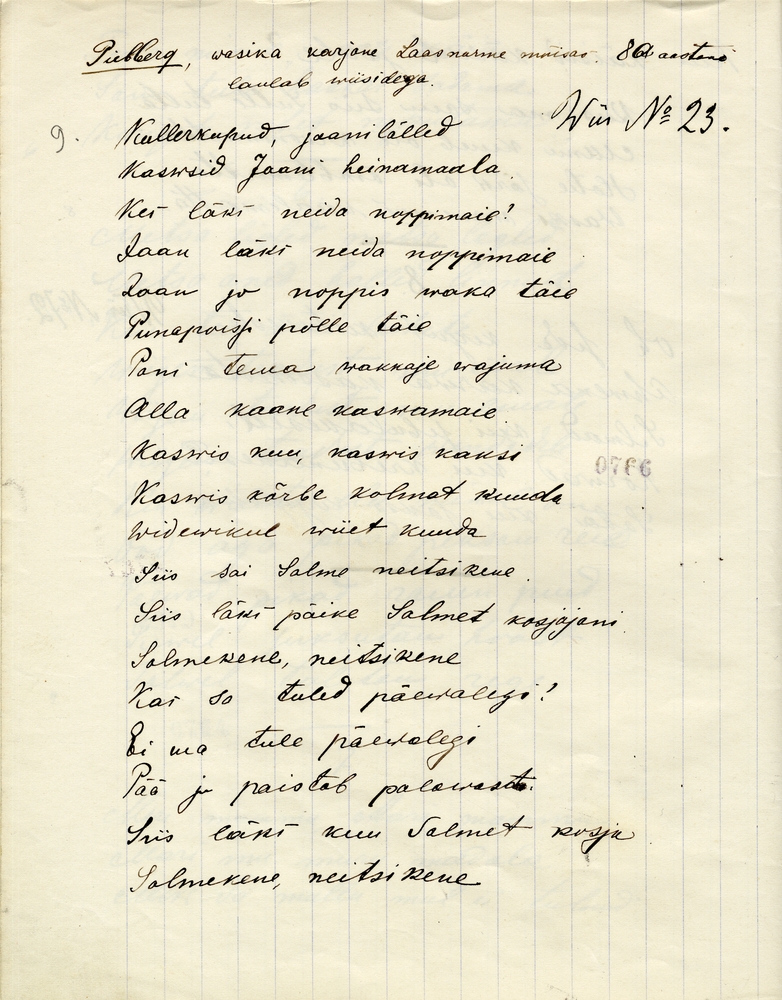 Piebberg, wasika karjane Laasnurme mõisas. 80 aastane
laulab wiisidega.
Wiis № 23.
9. Kullerkupud, jaanililled
Kaswsid Jaani heinamaala
Kes läks neida noppimaie?
Jaan läks neida noppimaie
Jaan jo noppis waka täie
Punapoissi põlle täie
Pani tema wakkaje wajuma
Alla kaane kaswamaie
Kaswis kuu, kaswis kaksi
Kaswis kõrbe kolmat kuuda
Widewikul wiiet kuuda
Siis sai Salme neitsikene.
Siis läks päike Salmet kosjajani
Salmekene, neitsikene
Kas sa tuled päewalegi?
Ei ma tule päewalegi
Pää ju paistab palawaste.
Siis läks kuu Salmet kosja
Salmekene, neitsikene
0766